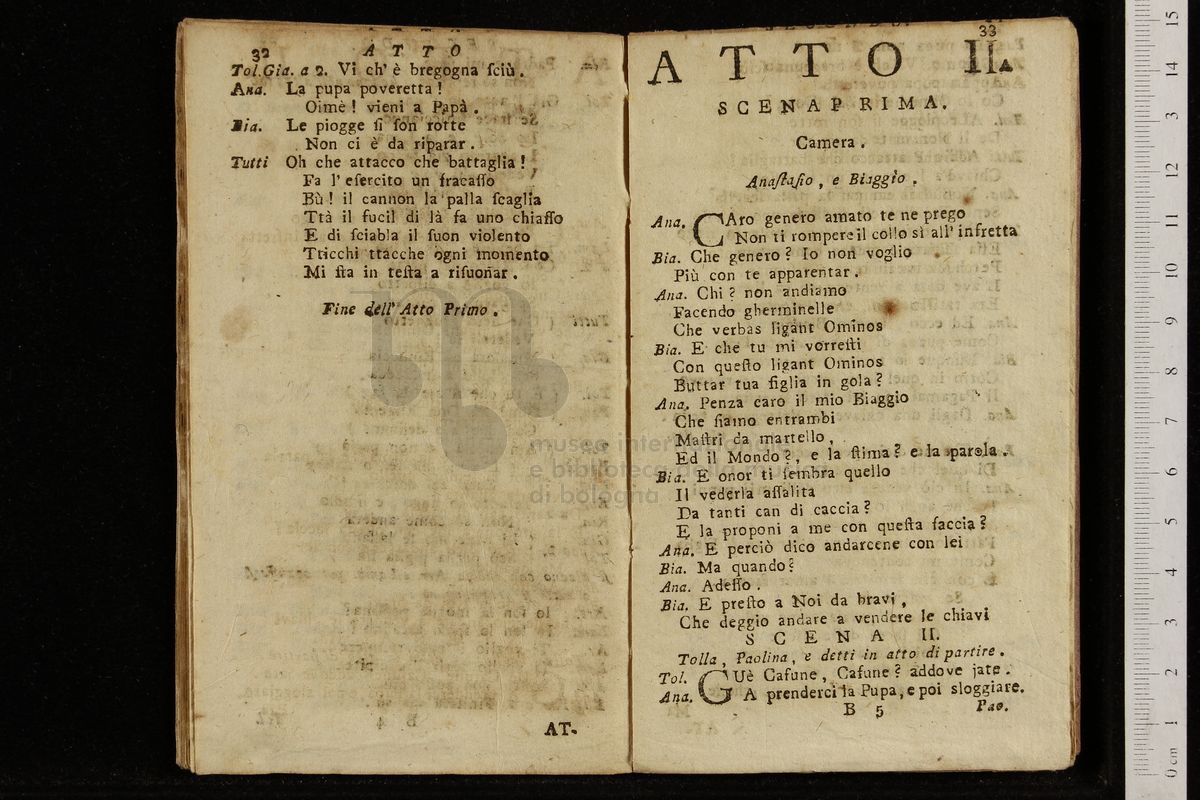 32
A T T O
Tol.Gia. a 2. Vi ch' è bregogna ſciù.
Ana. La pupa poveretta!
Oimè! vieni a Papà.
Bia. Le piogge ſi ſon rotte
Non ci è da riparar.
Tutti Oh che attacco che battaglia!
Fa l' eſercito un fracaſſo
Bù! il cannon la palla ſcaglia
Ttà il fucil di là fa uno chiaſſo
E di ſciabla il ſuon violento
Tricchi ttacche ogni momento
Mi ſta in teſta a riſuonar.
Fine dell' Atto Primo.
AT-
33
A T T O II.
SCENA PRIMA.
Camera.
Anaſtaſio, e Biaggio.
Ana. CAro genero amato te ne prego
Non ti rompere il collo sì all' infretta
Bia. Che genero? Io non voglio
Più con te apparentar.
Ana. Chi? non andiamo
Facendo gherminelle
Che verbas ligant Ominos
Bia. E che tu mi vorreſti
Con queſto ligant Ominos
Buttar tua figlia in gola?
Ana. Penza caro il mio Biaggio
Che ſiamo entrambi
Maſtri da martello,
Ed il Mondo?, e la ſtima? e la parola.
Bia. E onor ti ſembra quello
Il vederla aſſalita
Da tanti can di caccia?
E la proponi a me con queſta faccia?
Ana. E perciò dico andarcene con lei
Bia. Ma quando?
Ana. Adeſſo.
Bia. E preſto a Noi da bravi,
Che deggio andare a vendere le chiavi
S C E N A II.
Tolla, Paolina, e detti in atto di partire.
Tol. GUè Cafune, Cafune? addove jate.
Ana. A prenderci la Pupa, e poi sloggiare.
B 5
Pao.
museo internazionale
e biblioteca della musica
di bologna
15
14
13
12
11
10
9
8
7
6
5
4
3
2
1
0 cm